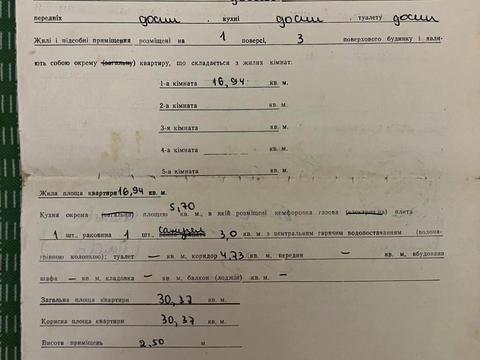 передніх досип, кухні досип, туалету досип
Жилі і підсобні приміщення розміщені на 1 поверсі, 3 поверхового будинку і явля-
ють собою окрему (загальну) квартиру, що складається з жилих кімнат:
1-а кімната 16,94 кв. м.
2-а кімната кв. м.
3-я кімната кв. м.
4-а кімната кв. м.
5-а кімната кв. м.
Жила площа квартири 16,94 кв. м.
Кухня окрема (загальна) площею 5,70 кв. м., в якій розміщені кемфоровка газова (електрична) плита
1 шт., раковина 1 шт., санузел 3,0 кв. м з центральним гарячим водопостачанням (водона-
грівною колонкою); туалет — кв. м, коридор 4,73 кв. м, передня — кв. м, вбудована
шафа — кв. м, кладовка — кв. м, балкон (лоджія) — кв. м.
Загальна площа квартири 30,37 кв. м.
Корисна площа квартири 30,37 кв. м.
Висота приміщень 2,50 м.